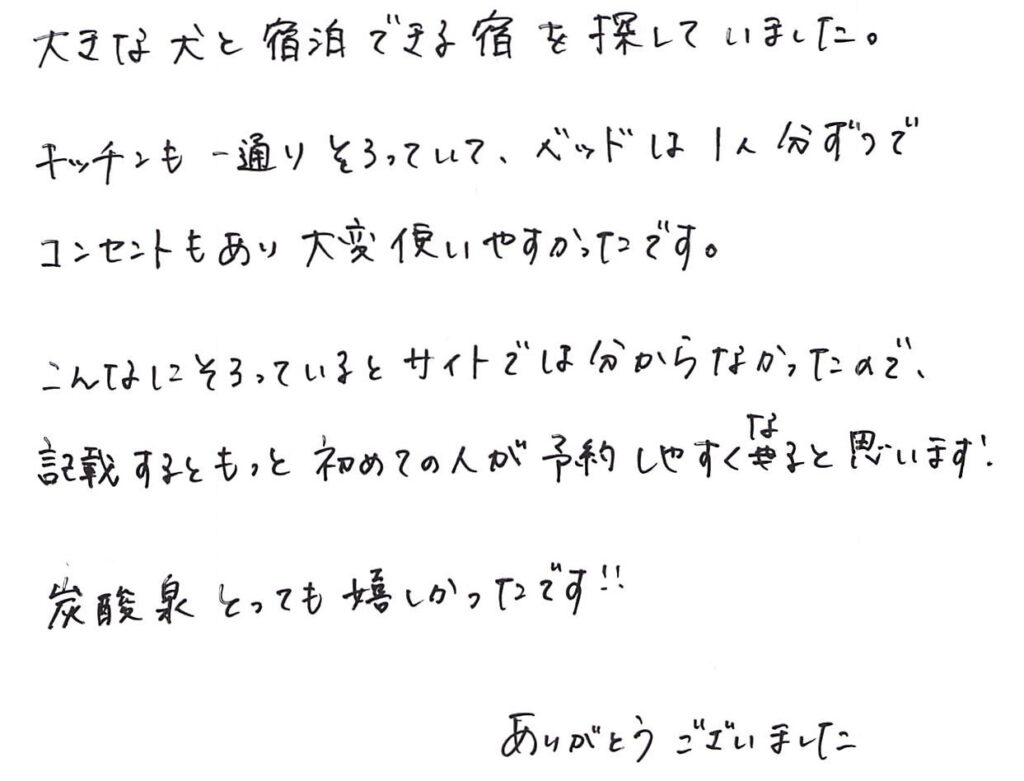 大きな犬と宿泊できる宿を探していました。
キッチンも一通りそろっていて、ベッドは1人分ずつで
コンセントもあり大変使いやすかったです。
こんなにそろっているとサイトでは分からなかったので、
記載するともっと初めての人が予約しやすくなると思います!
炭酸泉とっても嬉しかったです!!
ありがとうございました